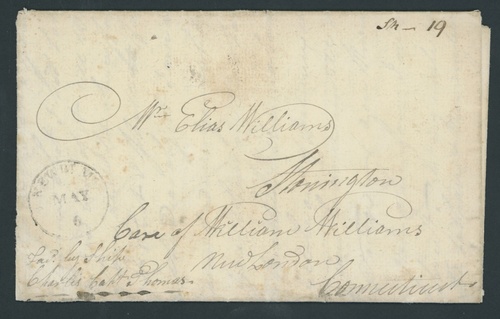 Sh - 19
Mr. Elias Williams
Stonington
MAY
Care of William Williams
New London
Connecticut
Ship
Charles Capt. Thomas